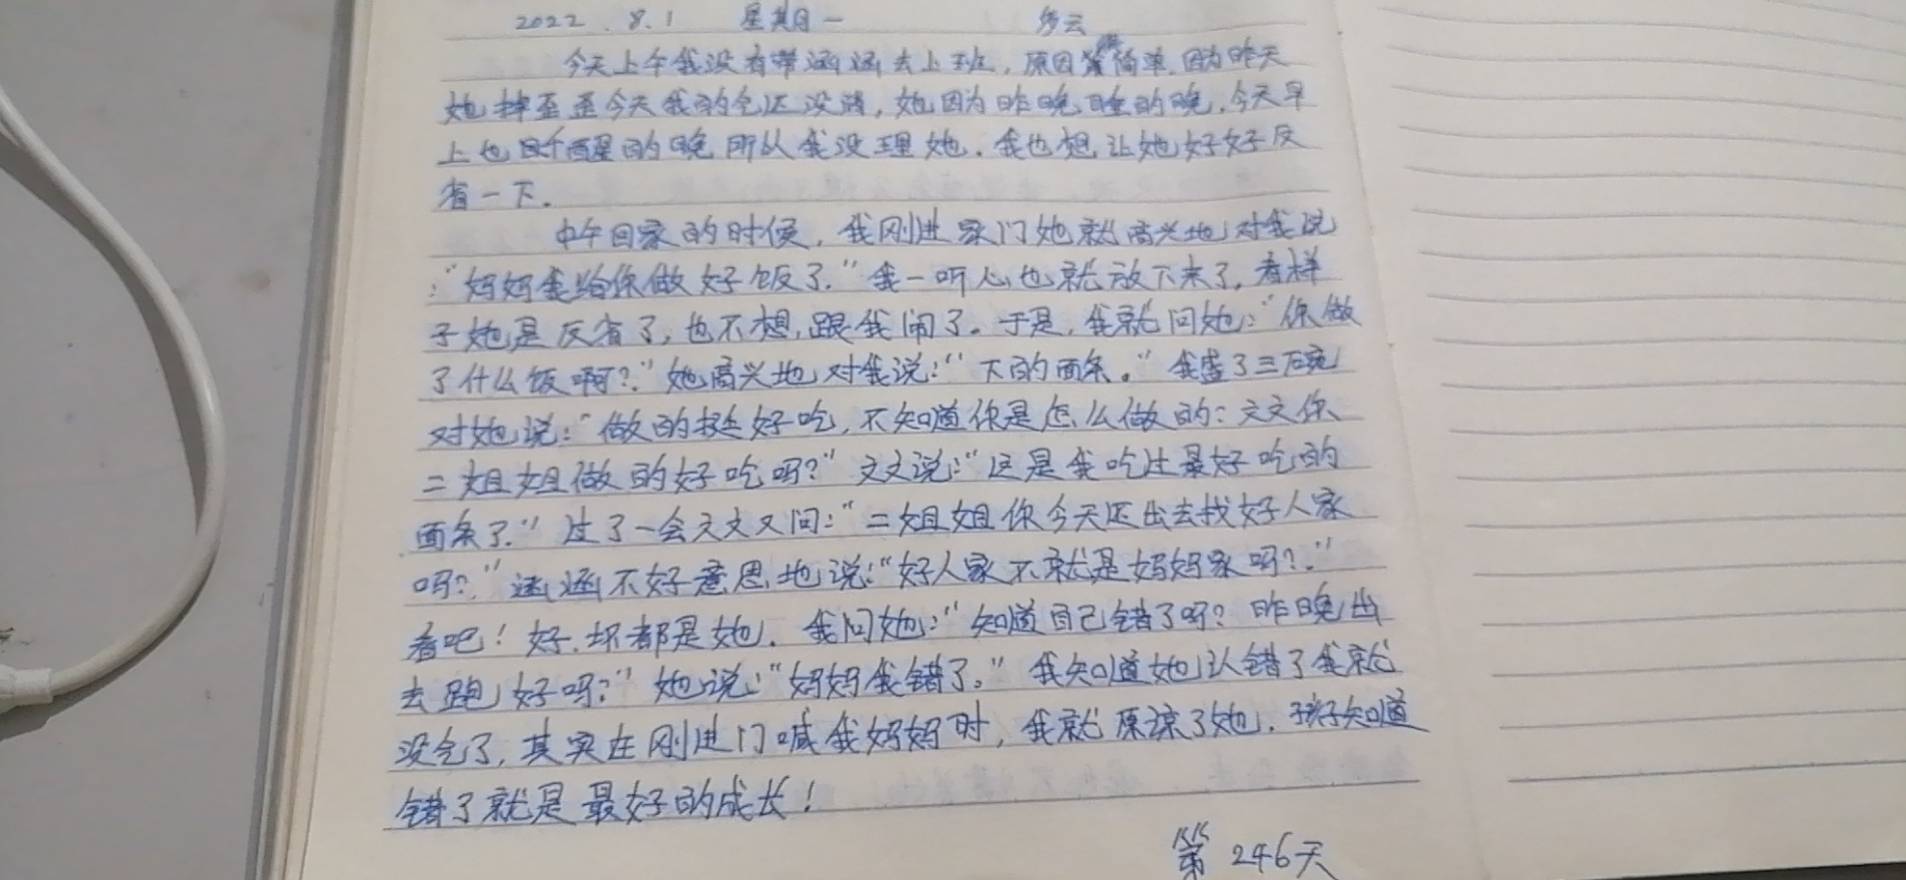 2022.8.1 星期一 多云
今天上午我没有带涵涵去上班,原因很简单.因为昨天
她掉歪歪今天我的气还没消,她因为昨晚睡的晚,今天早
上也醒的晚所以我没理她.我也想让她好好反
省一下.
中午回家的时候,我刚进家门她就高兴地对我说
:"妈妈我给你做好饭了."我一听心也就放下来了,看样
子她是反省了,也不想跟我闹了。于是,我就问她:"你做
了什么饭啊?"她高兴地对我说:"下的面条。"我盛了三碗
对她说:"做的挺好吃,不知道你是怎么做的:文文你
二姐姐做的好吃吗?"文文说:"这是我吃过最好吃的
面条了."过了一会文文又问:"二姐姐你今天还出去找好人家
吗?"涵涵不好意思地说:"好人家不就是妈妈家吗?."
看吧!好.坏都是她.我问她:"知道自己错了吗?昨晚出
去跑好吗?"她说:"妈妈我错了。"我知道她认错了我就
没气了,其实在刚进门喊我妈妈时,我就原谅了她.孩子知道
错了就是最好的成长!
第246天